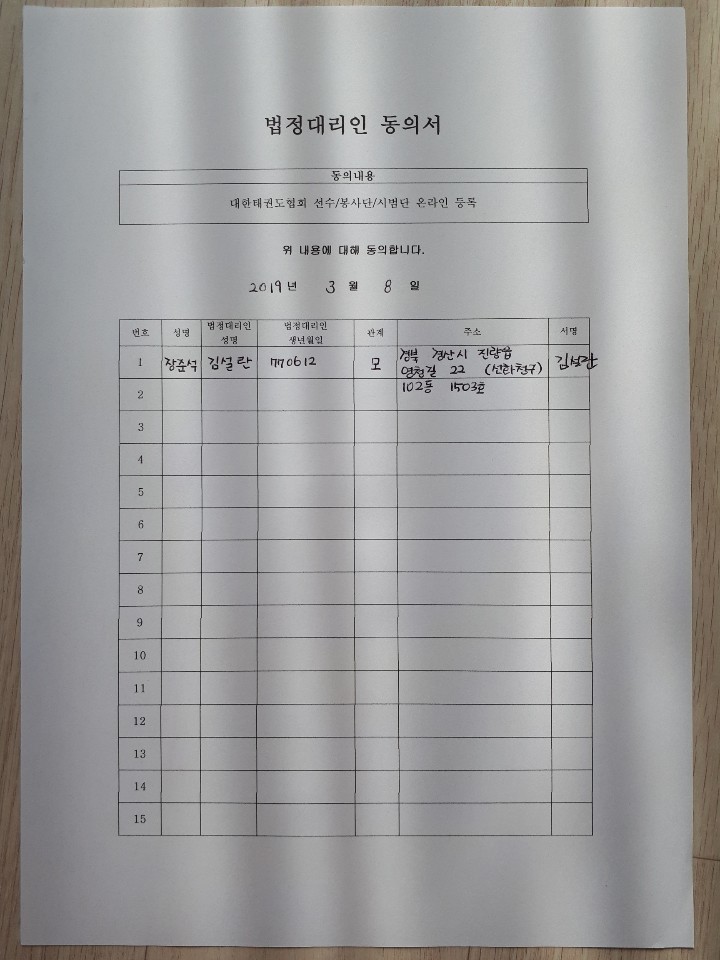 법정대리인 동의서
동의내용
대한태권도협회 선수/봉사단/시범단 온라인 등록
위 내용에 대해 동의합니다.
2019년 3월 8일
번호 성명 법정대리인 성명 법정대리인 생년월일 관계 주소 서명
1 장준석 김설란 770612 모 경북 경산시 진량읍 김설란
22
2 102동 1503호
3
4
5
6
7
8
9
10
11
12
13
14
15